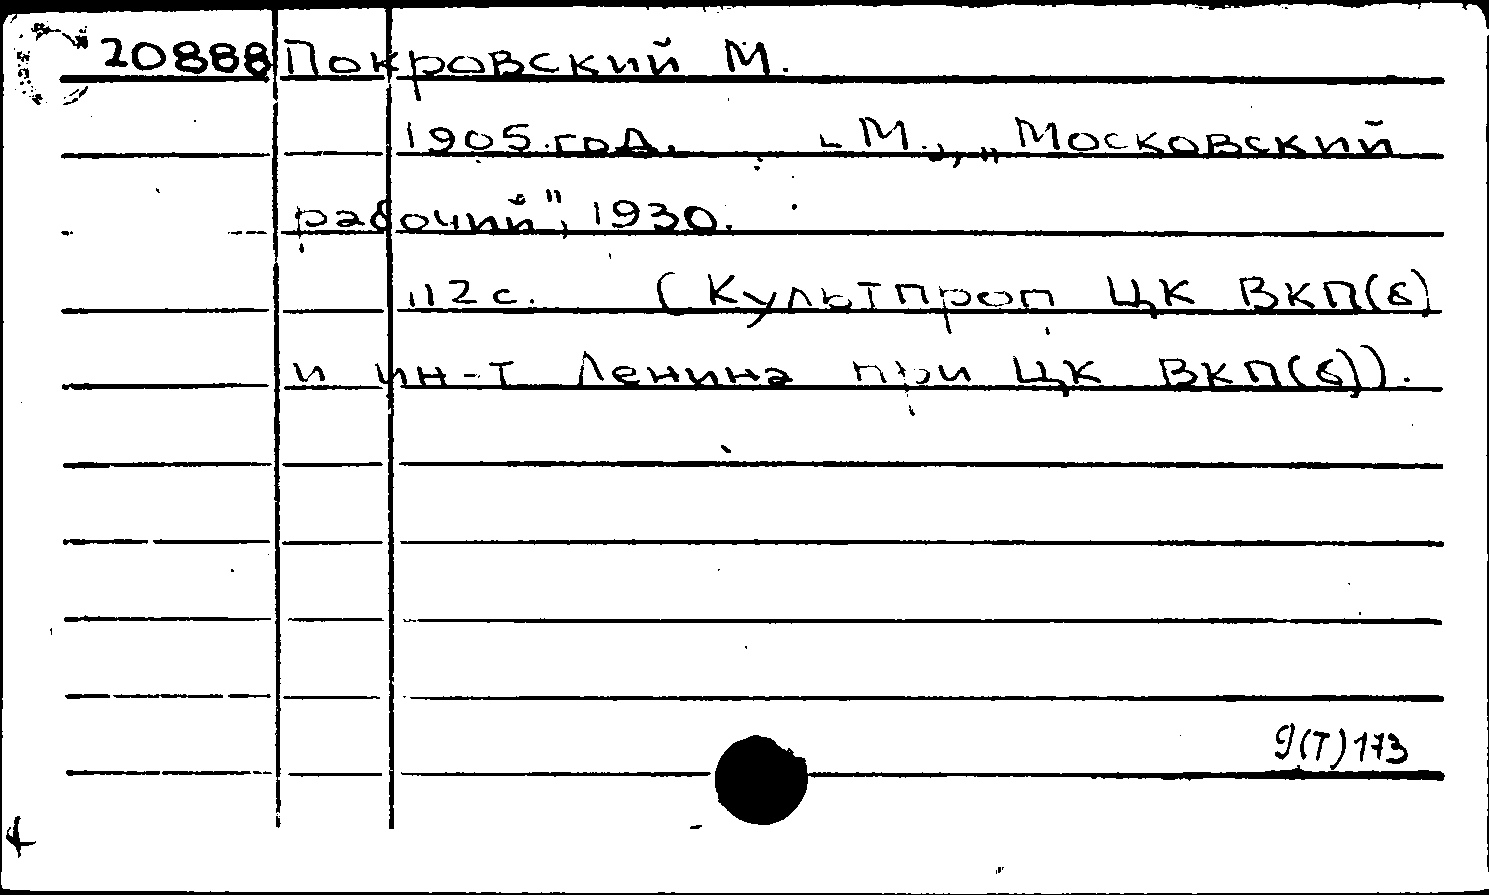 20888 Покровский М.
1905 год. - М., „Московский
рабочий", 1930.
112 с. (Культпроп ЦК ВКП(б)
и ин-т Ленина при ЦК ВКП(б)).
9(Т)173